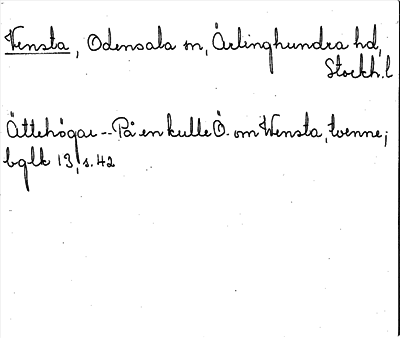 Vensta, Odensala sn, Ärlinghundra hd,
Stockh. l
Ättehögar -- På en kulle Ö. om Wensta, tvenne;
bglk 13, s. 42